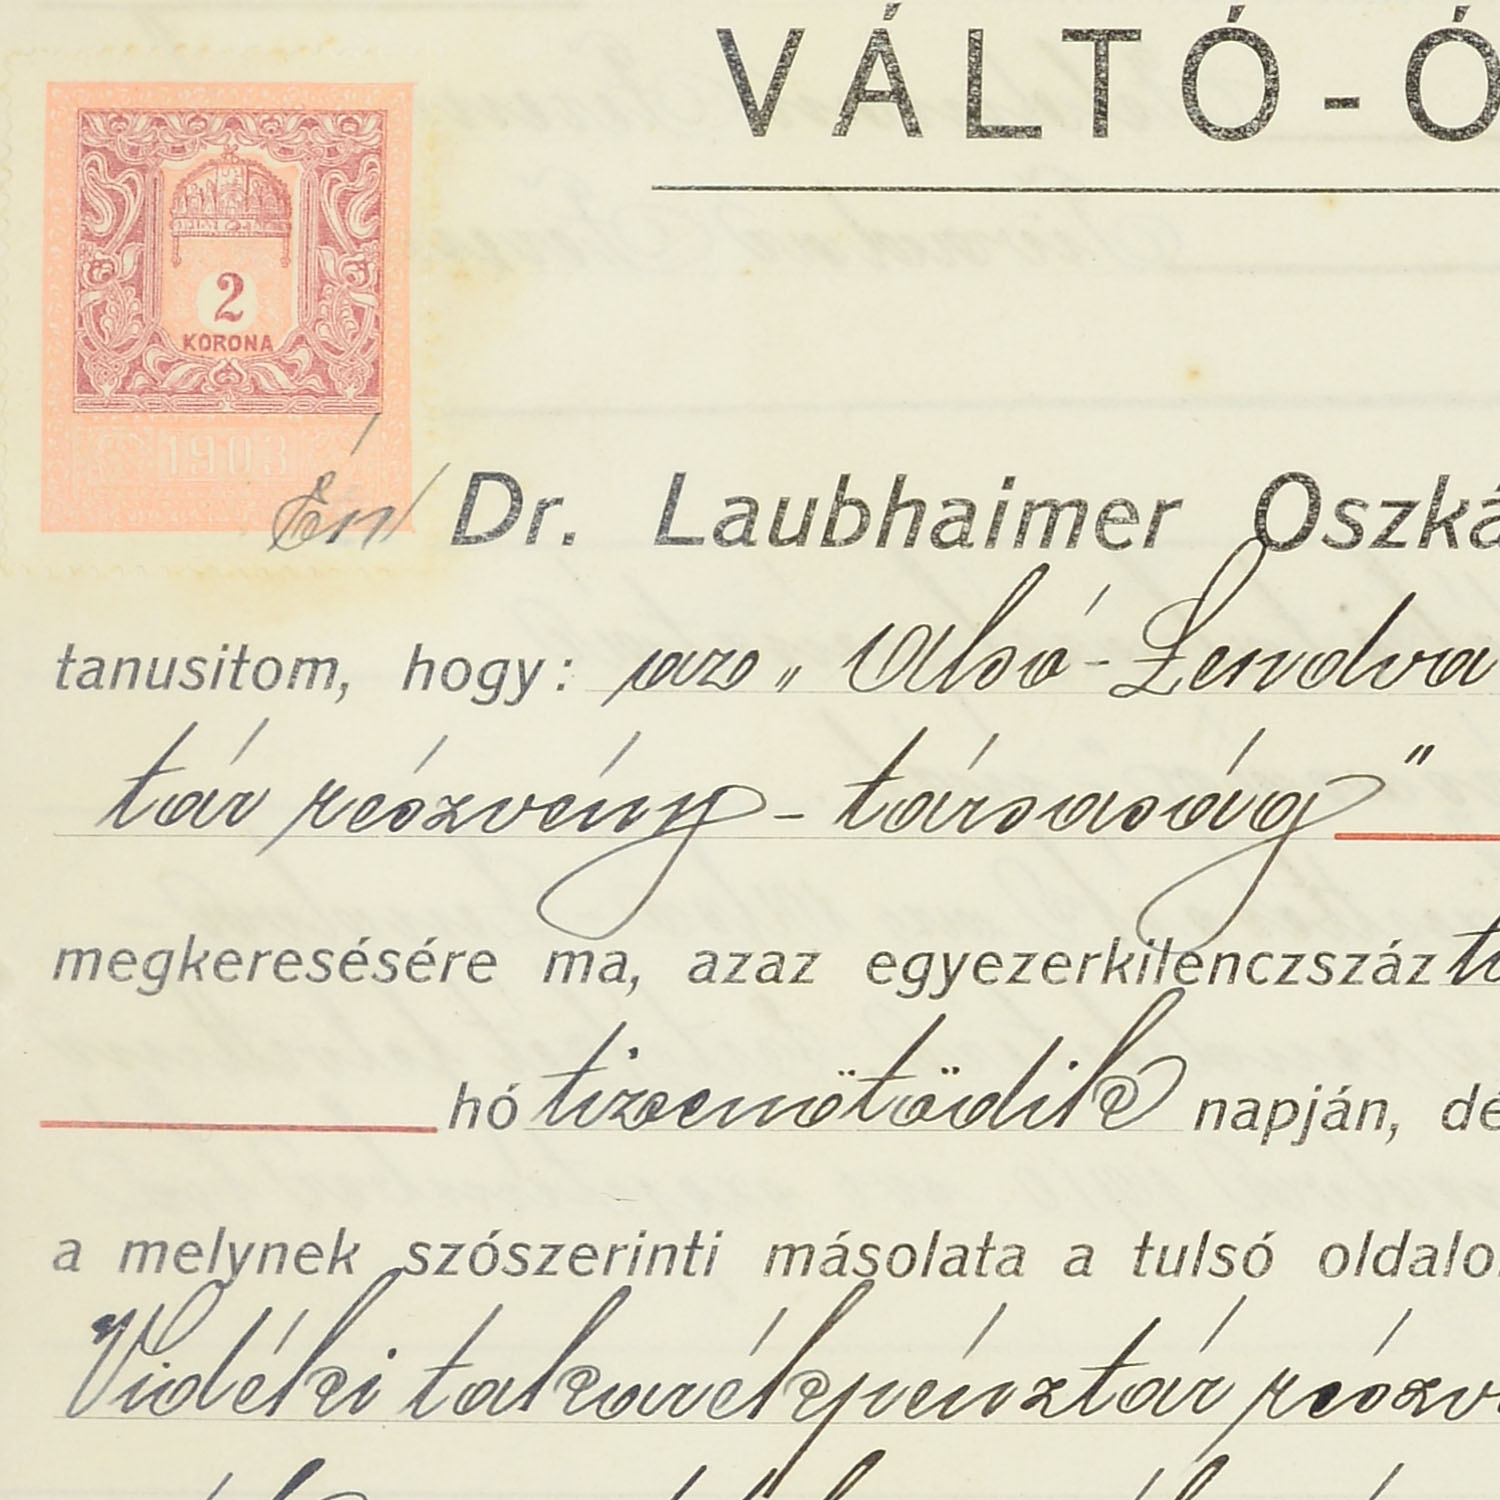 VÁLTÓ-Ó
2
KORONA
1903
Én Dr. Laubhaimer Oszká
tanusitom, hogy: az „Alsó-Lendva
tár részvény-társaság"
megkeresésére ma, azaz egyezerkilenczszáz
hó tizenötödik napján, dé
a melynek szószerinti másolata a tulsó oldalo
Vidéki takarékpénztár részv